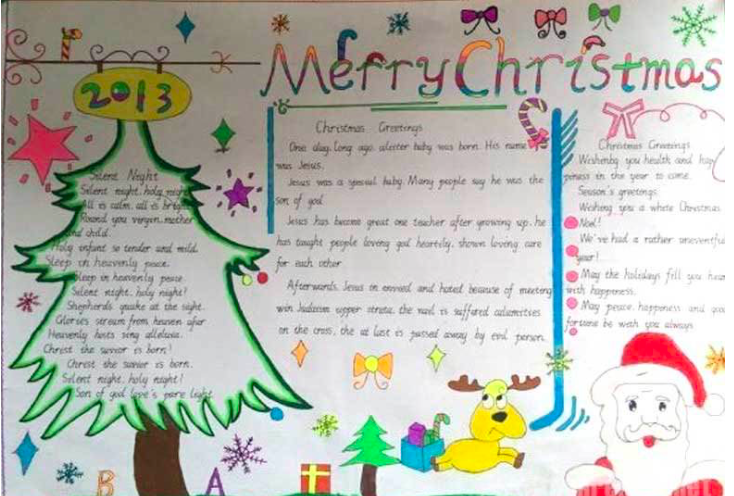 Merry Christmas
2013
Silent Night
Silent night, holy night
All is calm, all is bright
Round you virgin, mother
and child.
Holy infant so tender and mild.
Sleep in heavenly peace.
Sleep in heavenly peace.
Silent night, holy night!
Shepherds quake at the sight.
Glories stream from heaven afar
Heavenly hosts sing alleluia.
Chrest the savior is born!
Chrest the savior is born.
Silent night, holy night!
Son of god love's pure light
Christmas Greetings
One day, long ago, aleiter baby was born. His name
was Jesus.
Jesus was a special baby. Many people say he was the
son of god.
Jesus has become great one teacher after growing up. he
has taught people loving god heartily. shown loving care
for each other.
Afterwards, Jesus on envied and hated because of meeting
win Judaism upper strata, the nail is suffered calamitses
on the cross, the at last is passed away by evil person.
Christmas Greetings
Wishenby you health and hap
piness in the year to come.
Season's greetings.
Wishing you a white Christmas
Noel!
We've had a rather uneventfu
year!
May the holidays fill you hea
with happiness.
May peace, happiness and goo
fortune be with you always.
B A